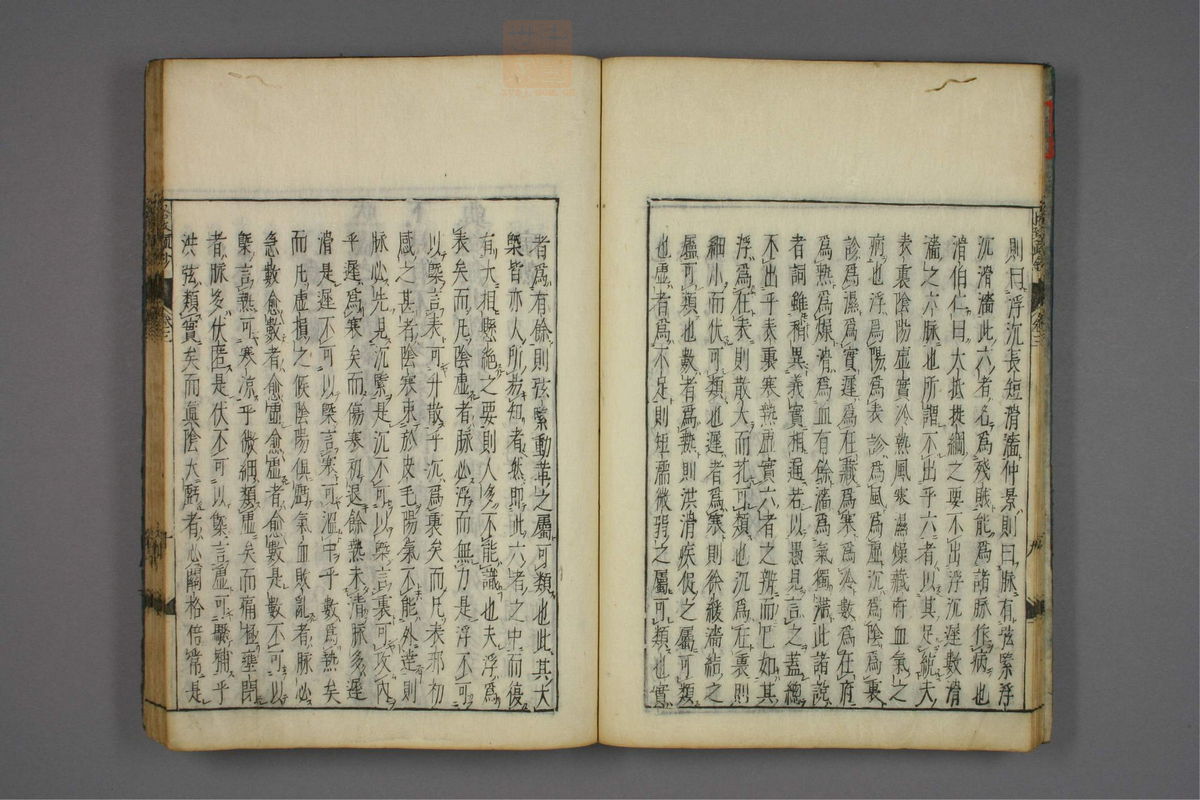 則曰浮沉長短滑濇仲景則曰脉有弦緊浮
沉滑濇此六者名為殘賊能為諸脉作病也
滑伯仁曰大抵提綱之要不出浮沉遲數滑
濇之六脉也所謂不出乎六者以其足統夫
表裏陰陽虛實冷熱風寒濕燥藏府血氣之
病也浮為陽為表診為風為虛沉為陰為裏
診為濕為實遲為在藏為寒為冷數為在府
為熱為燥滑為血有餘濇為氣獨滯此諸說
者詞雖稍異義實相通若以愚見言之蓋總
不出乎表裏寒熱虛實六者之辨而已如其
浮為在表則散大而芤可類也沉為在裏則
細小而伏可類也遲者為寒則徐緩濇結之
屬可類也數者為熱則洪滑疾促之屬可類
也虛者為不足則短濡微弱之屬可類也實
者為有餘則弦緊動革之屬可類也此其大
槩皆亦人所易知者然即此六者之中而復
有大相懸絕之要則人多不能識也夫浮為
表矣而凡陰虛者脉必浮而無力是浮不可
以槩言表可升散乎沉為裏矣而凡表邪初
感之甚者陰寒束於皮毛陽氣不能外達則
脉必先見沉緊是沉不可以槩言裏可攻內
乎遲為寒矣而傷寒初退餘熱未清脉多遲
滑是遲不可以槩言寒可溫中乎數為熱矣
而凡虛損之候陰陽俱虧氣血敗亂者脉必
急數愈數者愈虛愈虛者愈數是數不可以
槩言熱可寒涼乎微細類虛矣而痛極壅閉
者脉多伏匿是伏不可以槩言虛可驟補乎
洪弦類實矣而真陰大虧者必關格倍常是